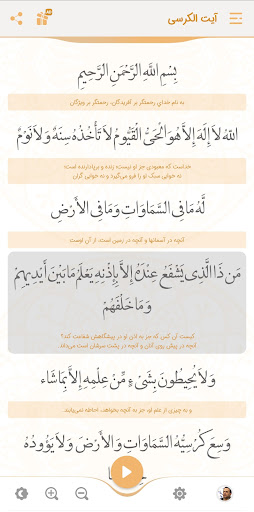 آیت الکرسی
بِسْمِ اللَّهِ الرَّحْمَنِ الرَّحِيمِ
به نام خدای رحمتگر بر آفریدگان، رحمتگر بر ویژگان
اللهُ لَا إِلَهَ إِلَّا هُوَ الْحَيُّ الْقَيُّومُ لَا تَأْخُذُهُ سِنَةٌ وَلَا نَوْمٌ
خداست که معبودی جز او نیست؛ زنده و برپادارنده است؛
نه خوابی سبک او را فرو می‌گیرد و نه خوابی گران
لَّهُ مَا فِي السَّمَاوَاتِ وَمَا فِي الْأَرْضِ
آنچه در آسمانها و آنچه در زمین است، از آن اوست
مَن ذَا الَّذِي يَشْفَعُ عِنْدَهُ إِلَّا بِإِذْنِهِ يَعْلَمُ مَا بَيْنَ أَيْدِيهِمْ
وَمَا خَلْفَهُمْ
کیست آن کس که جز به اذن او در پیشگاهش شفاعت کند؟
آنچه در پیش روی آنان و آنچه در پشت سرشان است می‌داند.
وَلَا يُحِيطُونَ بِشَيْءٍ مِّنْ عِلْمِهِ إِلَّا بِمَا شَاءَ
و به چیزی از علم او، جز به آنچه بخواهد، احاطه نمی‌یابند.
وَسِعَ كُرْسِيُّهُ السَّمَاوَاتِ وَالْأَرْضَ وَلَا يَؤُودُهُ